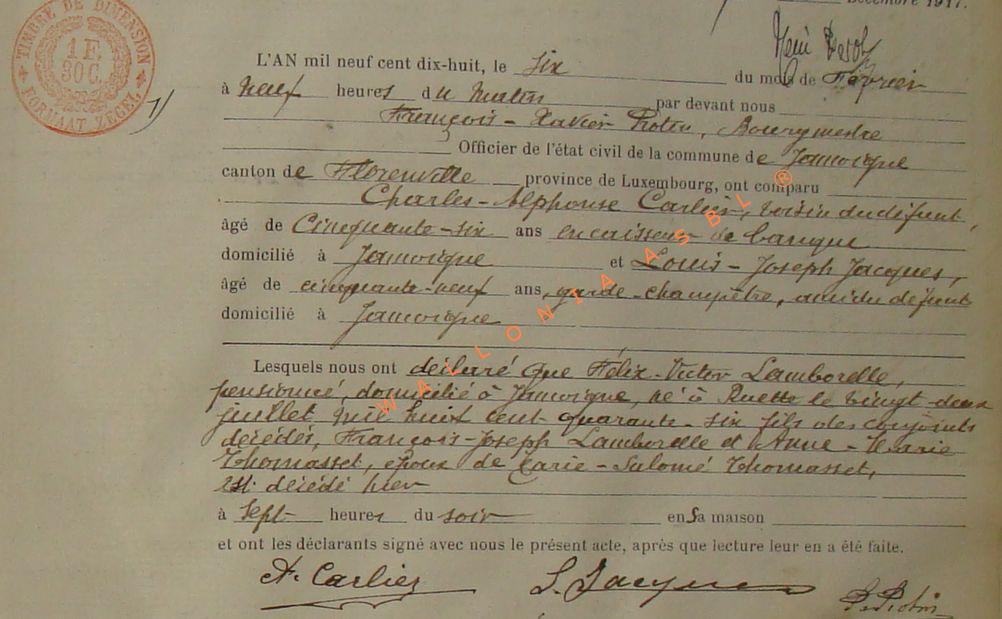 Décembre 1917.
TIMBRE DE DIMENSION
1 F.
30 C.
FORMAAT ZEGEL
1/
L'AN mil neuf cent dix-huit, le six du mois de Février
à neuf heures du matin par devant nous
François-Xavier Piotin, Bourgmestre
Officier de l'état civil de la commune de Jamoigne
canton de Florenville province de Luxembourg, ont comparu
Charles-Alphonse Carlier, voisin du défunt,
âgé de Cinquante-six ans encaisseur de banque
domicilié à Jamoigne et Louis-Joseph Jacques,
âgé de cinquante-neuf ans, garde-champêtre, ami du défunt
domicilié à Jamoigne
Lesquels nous ont déclaré que Félix-Victor Lamborelle,
pensionné, domicilié à Jamoigne, né à Ruette le vingt-deux
juillet mil huit cent quarante-six fils des conjoints
décédés, François-Joseph Lamborelle et Anne-Marie
Thomasset, époux de Marie-Salomé Thomasset,
est décédé hier
à sept heures du soir en sa maison
et ont les déclarants signé avec nous le présent acte, après que lecture leur en a été faite.
A. Carlier L. Jacques
WALLONIA ASBL ®